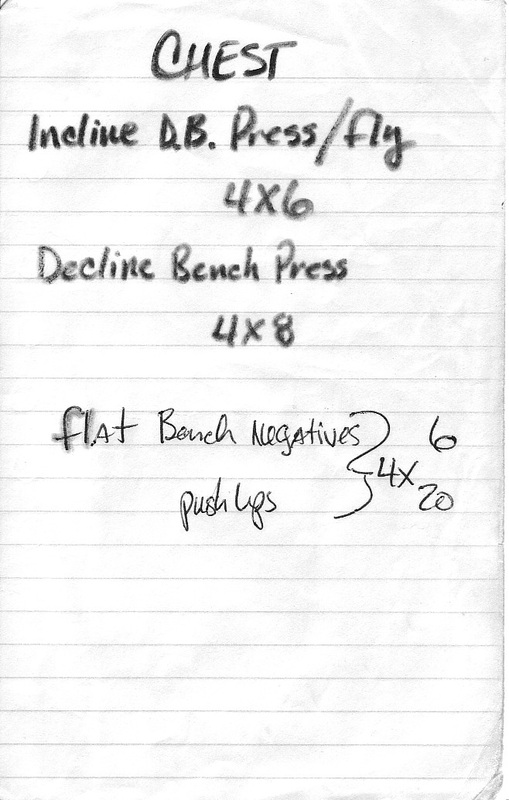 CHEST
Incline D.B. Press/fly
4x6
Decline Bench Press
4x8
flat Bench Negatives 6
4x
push ups 20